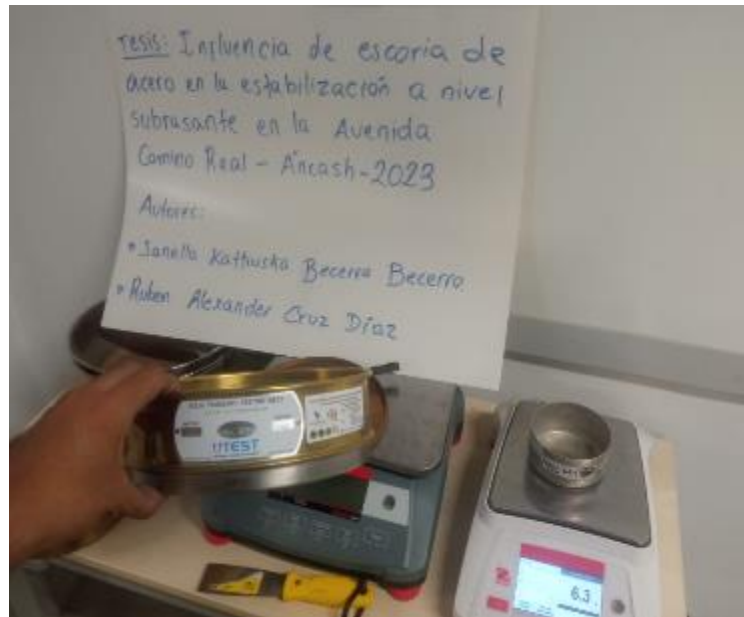 Tesis: Influencia de escoria de
acero en la estabilización a nivel
subrasante en la Avenida
Camino Real - Áncash-2023
Autores:
• Janella Kathuska Becerra Becerra
• Ruben Alexander Cruz Díaz
UTEST
6.3